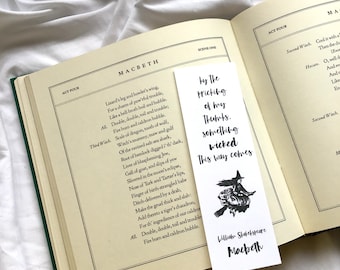 ACT FOUR
SCENE ONE
MACBETH
Lizard's leg and howlet's wing,
For a charm of pow'rful trouble,
Like a hell-broth boil and bubble.
All. Double, double, toil and trouble;
Fire burn and cauldron bubble.
Third Witch. Scale of dragon, tooth of wolf,
Witch's mummy, maw and gulf
Of the ravin'd salt-sea shark,
Root of hemlock digg'd i' th' dark,
Liver of blaspheming Jew,
Gall of goat, and slips of yew
Sliver'd in the moon's eclipse,
Nose of Turk and Tartar's lips,
Finger of birth-strangled babe
Ditch-deliver'd by a drab,
Make the gruel thick and slab:
Add thereto a tiger's chaudron,
For th' ingredience of our cauldron.
All. Double, double, toil and trouble;
Fire burn and cauldron bubble.
by the
pricking
of my
thumbs,
something
wicked
this way comes
William Shakespeare
Macbeth
ACT FOUR
Second Witch.